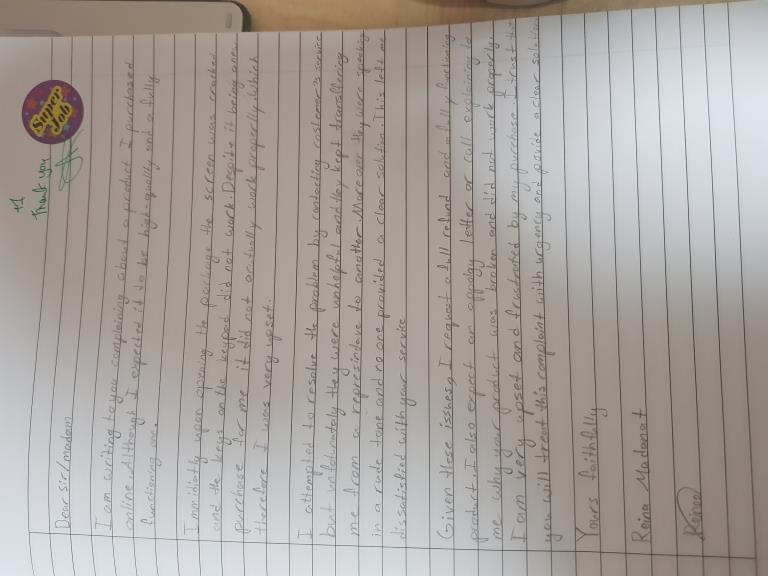 +1
Thank you
Super
Job
Dear sir/madam
I am writing to you complaining about a product I purchased
online. Although I expected it to be high-quality and a fully
functioning one.
Immidiatly upon opening the package the screen was cracked
and the keys on the keypad did not work. Despite it being a new
purchase for me it did not actually work properly. Which
therefore I was very upset.
I attempted to resolve the problem by contacting costumer's service
but unfotunately they were unhelpful and they kept transffering
me from a represindave to another. Moreover they were speaking
in a rude tone and no one provided a clear solution. This left me
dissatisfied with your service
Given these isshes, I request a full refund and a fully functioning
product. I also expect an appolgy letter or call explaining to
me why your product was broken and did not work properly.
I am very upset and frustrated by my purchase. I trust that
you will treat this complaint with urgency and povide a clear solution
Yours faithfully
Reina Madanat
Reina